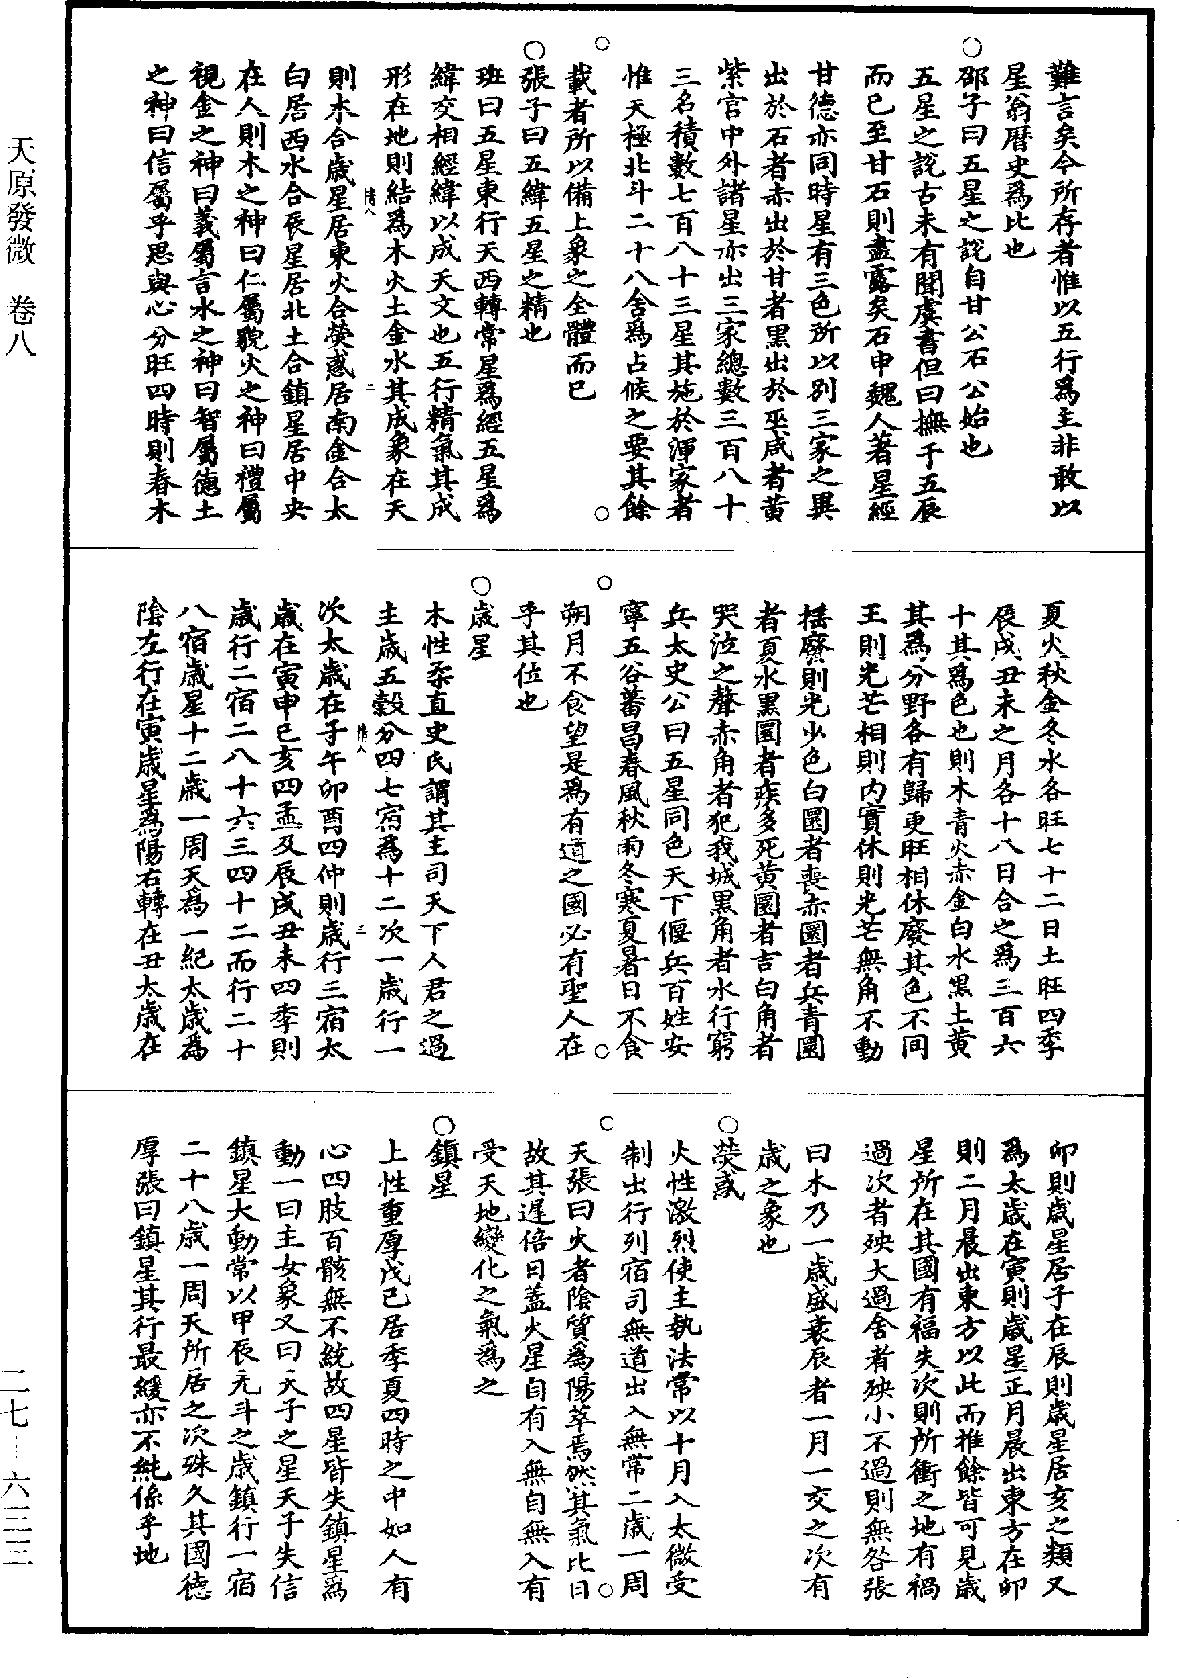 天原發微　卷八
難言矣今所存者惟以五行爲主非敢以
星翁曆史爲比也
○邵子曰五星之說自甘公石公始也
五星之說古未有聞虞書但曰撫于五辰
而已至甘石則盡露矣石申魏人著星經
甘德亦同時星有三色所以別三家之異
出於石者赤出於甘者黑出於巫咸者黃
紫官中外諸星亦出三家總數三百八十
三名積數七百八十三星其施於渾家者
惟天極北斗二十八舍爲占候之要其餘
載者所以備上象之全體而已
○張子曰五緯五星之精也
班曰五星東行天西轉常星爲經五星爲
緯交相經緯以成天文也五行精氣其成
形在地則結爲木火土金水其成象在天
則木合歲星居東火合熒惑居南金合太
白居西水合辰星居北土合鎮星居中央
在人則木之神曰仁屬貌火之神曰禮屬
視金之神曰義屬言水之神曰智屬德土
之神曰信屬乎思與心分旺四時則春木
夏火秋金冬水各旺七十二日土旺四季
辰戌丑未之月各十八日合之爲三百六
十其爲色也則木青火赤金白水黑土黃
其爲分野各有歸更旺相休廢其色不同
王則光芒相則內實休則光芒無角不動
搖廢則光少色白圜者喪赤圜者兵青圜
者夏水黑圜者疾多死黃圜者吉白角者
哭泣之聲赤角者犯我城黑角者水行窮
兵太史公曰五星同色天下偃兵百姓安
寧五谷蕃昌春風秋雨冬寒夏暑日不食
朔月不食望是爲有道之國必有聖人在
乎其位也
○歲星
木性柔直史氏謂其主司天下人君之過
主歲五穀分四七宿爲十二次一歲行一
次太歲在子午卯酉四仲則歲行三宿太
歲在寅申巳亥四孟及辰戌丑未四季則
歲行二宿二八十六三四十二而行二十
八宿歲星十二歲一周天爲一紀太歲爲
陰左行在寅歲星爲陽右轉在丑太歲在
卯則歲星居子在辰則歲星居亥之類又
爲太歲在寅則歲星正月晨出東方在卯
則二月晨出東方以此而推餘皆可見歲
星所在其國有福失次則所衝之地有禍
過次者殃大過舍者殃小不過則無咎張
曰木乃一歲盛衰辰者一月一交之次有
歲之象也
○熒惑
火性激烈使主執法常以十月入太微受
制出行列宿司無道出入無常二歲一周
天張曰火者陰質爲陽萃焉然其氣比日
故其遲倍日蓋火星自有入無自無入有
受天地變化之氣爲之
○鎮星
土性重厚戊己居季夏四時之中如人有
心四肢百骸無不統故四星皆失鎮星爲
動一曰主女象又曰天子之星天子失信
鎮星大動常以甲辰元斗之歲鎮行一宿
二十八歲一周天所居之次殊久其國德
厚張曰鎮星其行最緩亦不純係乎地
二七—六三三